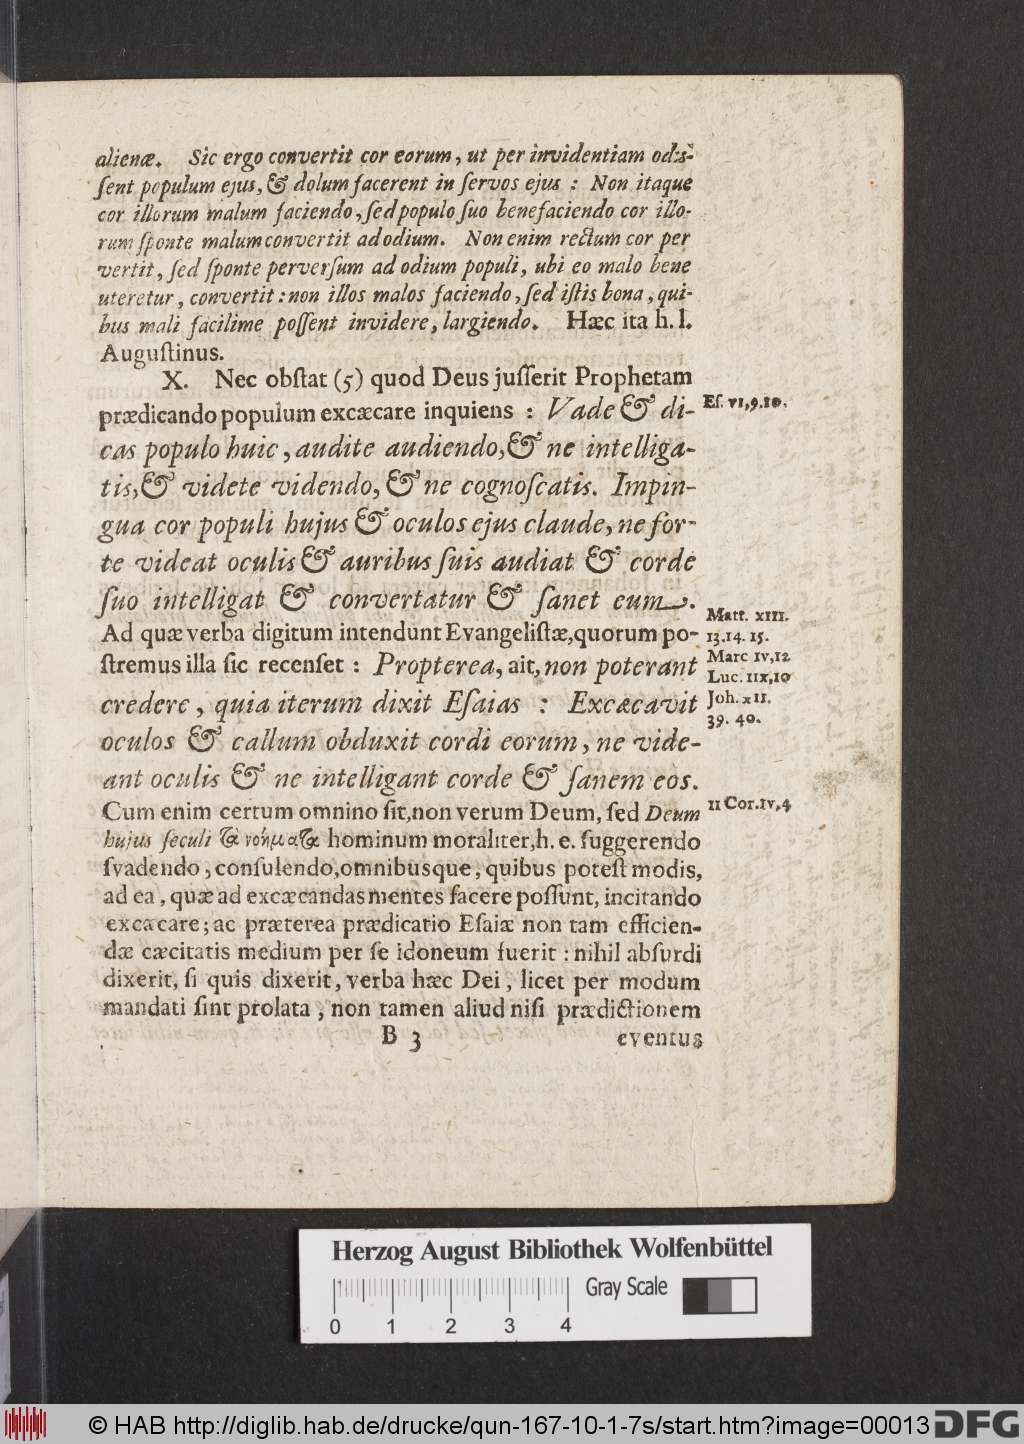 alienæ. Sic ergo convertit cor eorum, ut per invidentiam odis-
ſent populum ejus, & dolum facerent in ſervos ejus : Non itaque
cor illorum malum faciendo, ſed populo ſuo benefaciendo cor illo-
rum ſponte malum convertit ad odium. Non enim rectum cor per
vertit, ſed ſponte perverſum ad odium populi, ubi eo malo bene
uteretur, convertit : non illos malos faciendo, ſed iſtis bona, qui-
bus mali facilime poſſent invidere, largiendo. Hæc ita h. l.
Auguſtinus.
X. Nec obſtat (5) quod Deus juſſerit Prophetam
prædicando populum excæcare inquiens : Vade & di-
Eſ. VI, 9. 10.
cas populo huic, audite audiendo, & ne intelliga-
tis, & videte videndo, & ne cognoſcatis. Impin-
gua cor populi hujus & oculos ejus claude, ne for-
te videat oculis & auribus ſuis audiat & corde
ſuo intelligat & convertatur & ſanet eum.
Matt. XIII.
Ad quæ verba digitum intendunt Evangeliſtæ, quorum po-
13. 14. 15.
ſtremus illa ſic recenſet : Propterea, ait, non poterant
Marc IV, 12
Luc. IIX, 10
credere, quia iterum dixit Eſaias : Excæcavit
Joh. XII.
39. 40.
oculos & callum obduxit cordi eorum, ne vide-
ant oculis & ne intelligant corde & ſanem eos.
Cum enim certum omnino ſit, non verum Deum, ſed Deum
II Cor. IV, 4
hujus ſeculi τὰ νοήματα hominum moraliter, h. e. ſuggerendo
ſvadendo, conſulendo, omnibusque, quibus poteſt modis,
ad ea, quæ ad excæcandas mentes facere poſſunt, incitando
excæcare; ac præterea prædicatio Eſaiæ non tam efficien-
dæ cæcitatis medium per ſe idoneum fuerit : nihil abſurdi
dixerit, ſi quis dixerit, verba hæc Dei, licet per modum
mandati ſint prolata, non tamen aliud niſi prædictionem
B 3 eventus
Herzog August Bibliothek Wolfenbüttel
Gray Scale
0 1 2 3 4
© HAB http://diglib.hab.de/drucke/qun-167-10-1-7s/start.htm?image=00013 DFG